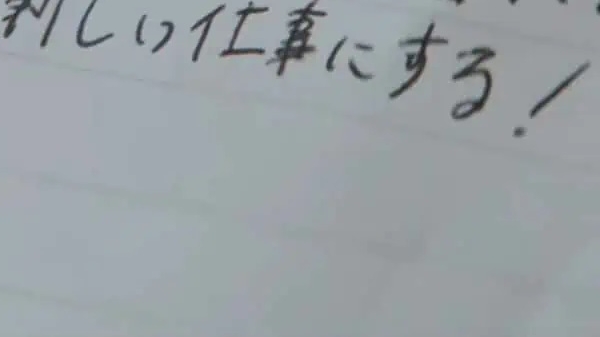 新しい仕事にする!